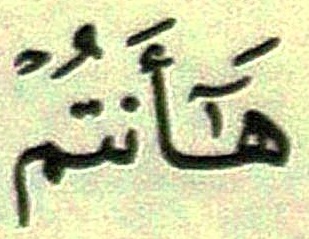 هَآأَنتُمْ